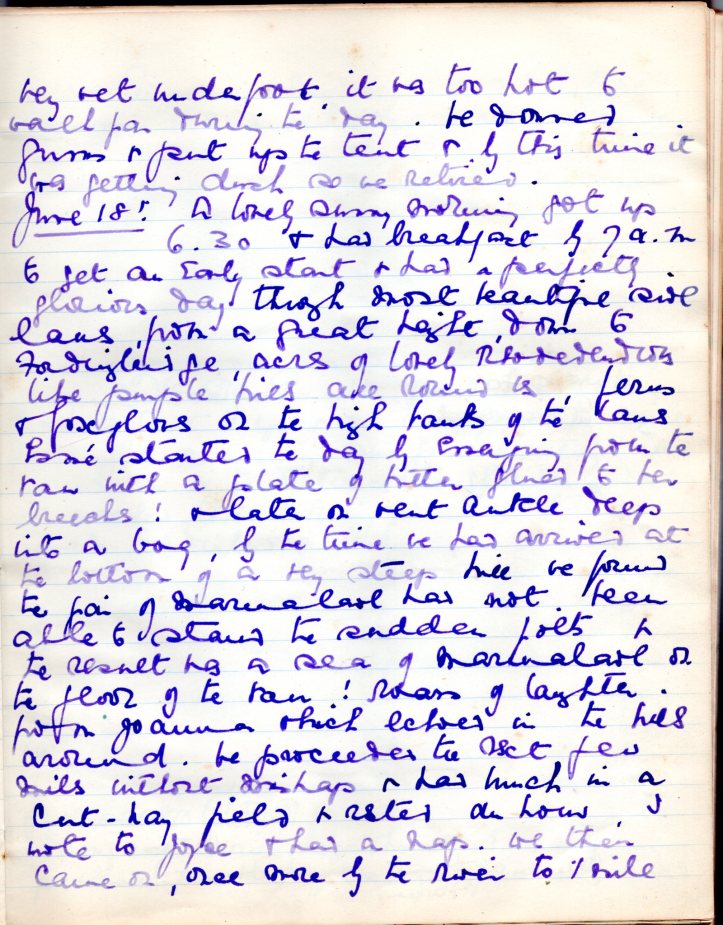 very wet underfoot, it was too hot to
walk far during the day. We donned
gums & put up the tent & by this time it
was getting dark so we retired.
June 18th. A lovely sunny morning got up
6.30 & had breakfast by 7 a.m
to get an early start & had a perfectly
glorious day through most beautiful side
lanes, from a great height, down to
Fordingbridge, acres of lovely Rhododendrons
like purple hills all round us, ferns
& foxgloves on the high banks of the lanes
Esmé started the day by emerging from the
van with a plate of butter glued to her
breechs! & later on went ankle deep
into a bog, by the time we had arrived at
the bottom of a very steep hill we found
the jar of marmalade had not been
able to stand the sudden jolts &
the result was a sea of marmalade on
the floor of the van! Roars of laughter.
from Joanna which echoed in the hills
around. We proceeded the next few
miles without mishap & had lunch in a
cut-hay field & rested an hour, I
wrote to Joyce & had a nap. We then
came on, once more by the river to 1 mile